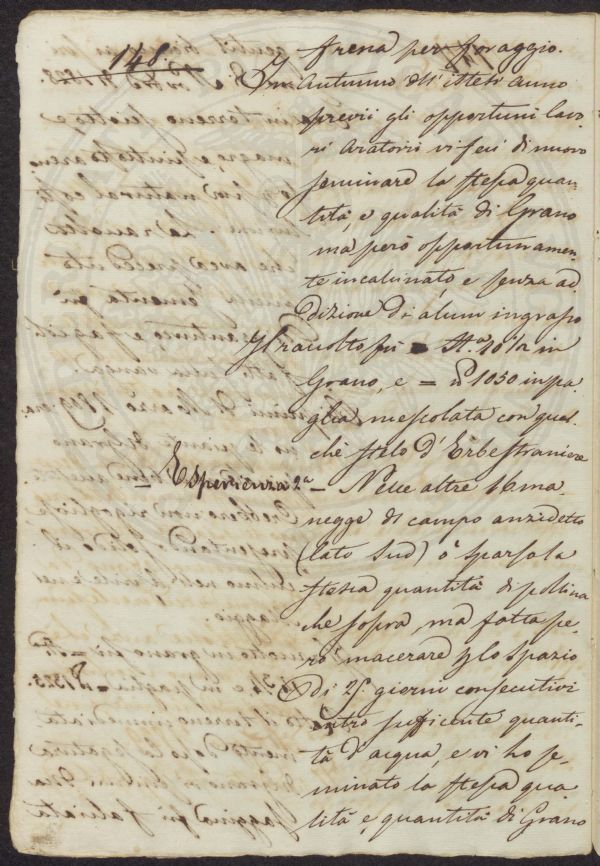 148.
frena per foraggio.
In Autunno dell'istesso anno
previi gli opportuni lavo-
ri aratorii vi feci di nuovo
seminare la stessa quan-
tità, e qualità di Grano
ma però opportunamen-
te incalcinato, e senza ad
dizione di alcun ingrasso
Il raccolto fù = St.a 10 1/2 in
Grano, e = 1050 in pa-
glia mescolata con qual-
che stelo d'Erbe straniere
= Esperienza 2a = Nelle altre 16 ma-
negge di campo anzidetto
(lato Sud) ò sparsa la
stessa quantità di pollina
che sopra, ma fatta pe-
rò macerare per lo spazio
di 25 giorni consecutivi
entro sufficente quanti-
tà d'acqua, e vi ho se-
minato la stessa qua-
lità e quantità di Grano